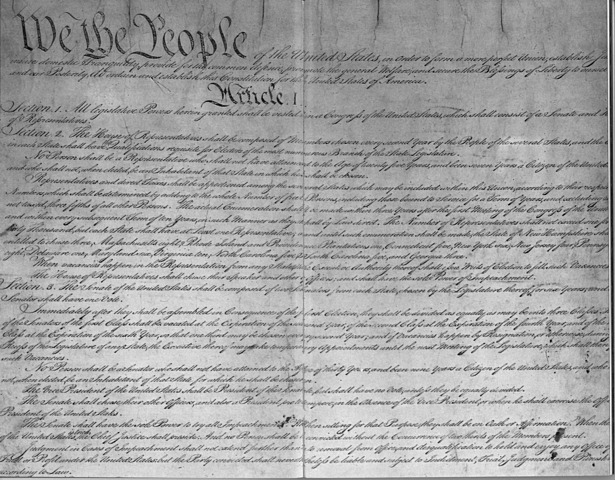 We the People of the United States, in order to form a more perfect Union, establish
domestic Tranquility, provide for the common defence, promote the general Welfare, and secure the Blessings of Liberty to
and our Posterity, do ordain and establish this Constitution for the United States of America.
Article. I
Section. 1. All legislative Powers herein granted shall be vested in a Congress of the United States, which shall consist of a Senate and
of Representatives.
Section. 2. The House of Representatives shall be composed of Members chosen every second Year by the People of the several States, and the
in each State shall have Qualifications requisite for Electors of the most numerous Branch of the State Legislature.
No Person shall be a Representative who shall not have attained to the Age of twenty five Years, and been seven Years a Citizen of the United
and who shall not, when elected, be an Inhabitant of that State in which he shall be chosen.
Representatives and direct Taxes shall be apportioned among the several States which may be included within this Union, according to their
Numbers, which shall be determined by adding to the whole Number of free Persons, including those bound to Service for a Term of Years, and
not taxed, three fifths of all other Persons. The actual Enumeration shall be made within three Years after the first Meeting of the Congress of the
and within every subsequent Term of ten Years, in such Manner as they shall by Law direct. The Number of Representatives shall not exceed one for every
thirty Thousand, but each State shall have at Least one Representative; and until such enumeration shall be made, the State of New Hampshire
entitled to chuse three, Massachusetts eight, Rhode Island and Providence Plantations one, Connecticut five, New York six, New Jersey four,
eight, Delaware one, Maryland six, Virginia ten, North Carolina five, South Carolina five, and Georgia three.
When vacancies happen in the Representation from any State, the Executive Authority thereof shall issue Writs of Election to fill such Vacancies.
The House of Representatives shall chuse their Speaker and other Officers; and shall have the sole Power of Impeachment.
Section. 3. The Senate of the United States shall be composed of two Senators from each State, chosen by the Legislature thereof, for six Years;
Senator shall have one Vote.
Immediately after they shall be assembled in Consequence of the first Election, they shall be divided as equally as may be into three Classes.
of the Senators of the first Class shall be vacated at the Expiration of the second Year, of the second Class at the Expiration of the fourth Year, and of the
Class at the Expiration of the sixth Year, so that one third may be chosen every second Year; and if Vacancies happen by
Recess of the Legislature of any State, the Executive thereof may make temporary Appointments until the next Meeting of the Legislature, which shall then
such Vacancies.
No Person shall be a Senator who shall not have attained to the Age of thirty Years, and been nine Years a Citizen of the United States, and who
not, when elected, be an Inhabitant of that State for which he shall be chosen.
The Vice President of the United States shall be President of the Senate, but shall have no Vote, unless they be equally divided.
The Senate shall chuse their other Officers, and also a President pro tempore, in the Absence of the Vice President, or when he shall exercise the Office
President of the United States.
The Senate shall have the sole Power to try all Impeachments. When sitting for that Purpose, they shall be on Oath or Affirmation. When the
of the United States the Chief Justice shall preside: And no Person shall be convicted without the Concurrence of two thirds of the Members present.
Judgment in Cases of Impeachment shall not extend further than to removal from Office, and disqualification to hold and enjoy any Office
Trust or Profit under the United States: but the Party convicted shall nevertheless be liable and subject to Indictment, Trial, Judgment and
according to Law.